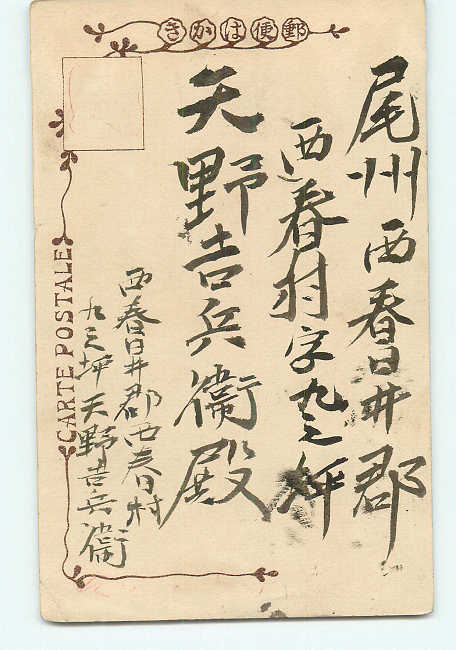 きかは便郵
尾州西春日井郡
西春村字九之坪
天野吉兵衛殿
西春日井郡西春村
九之坪天野吉兵衛
CARTE POSTALE